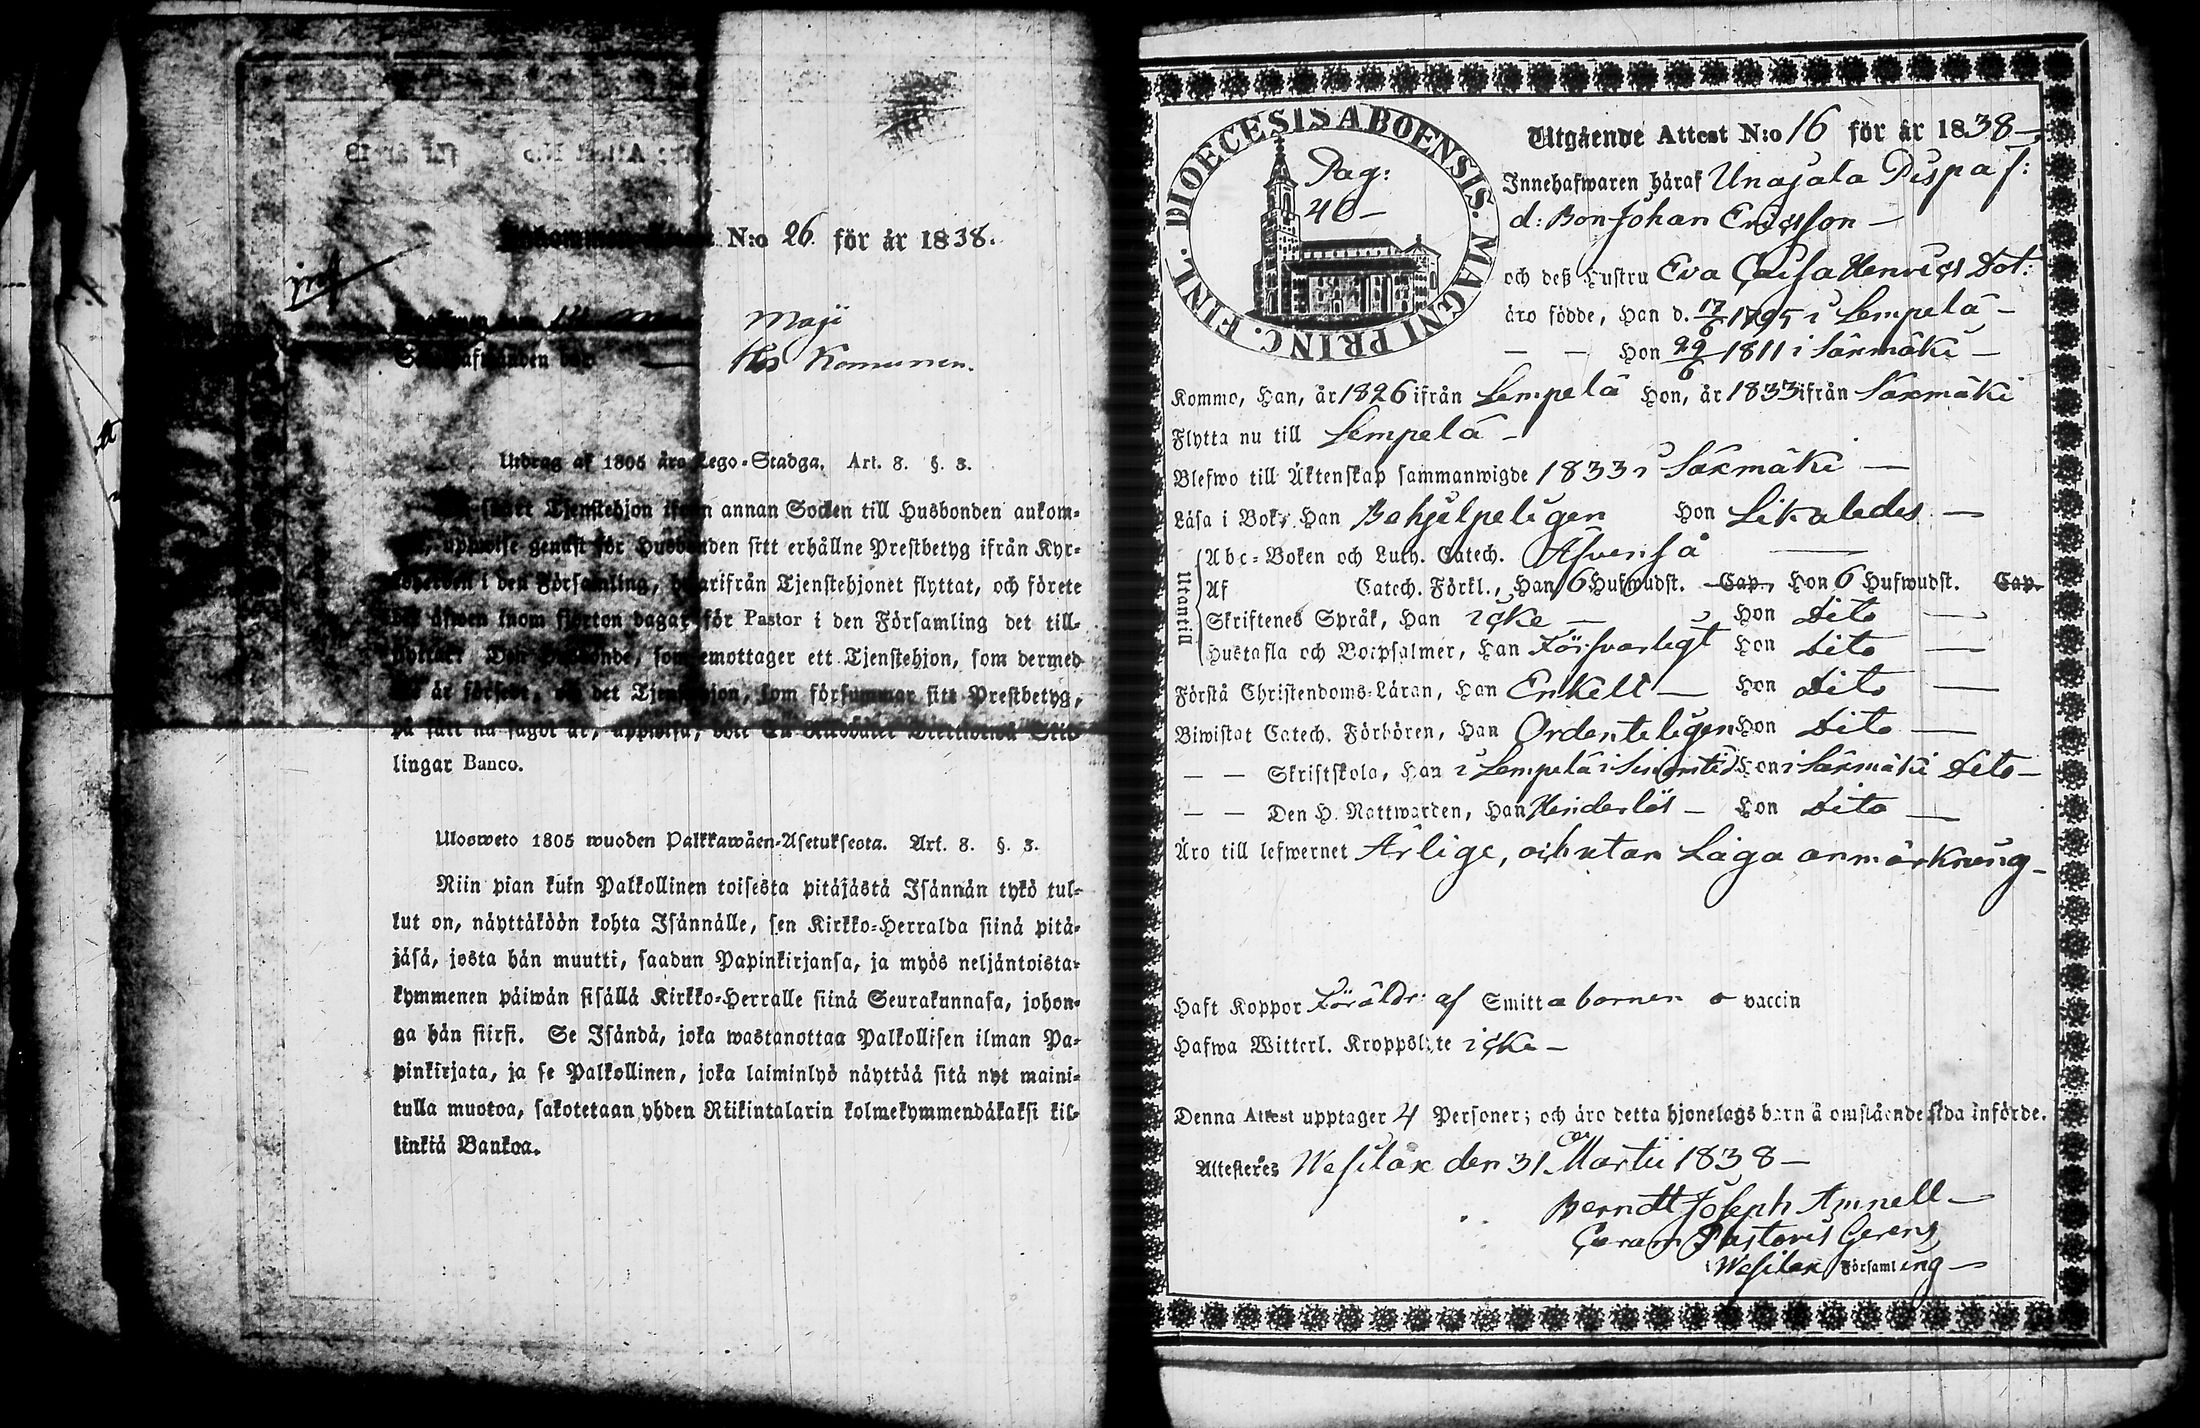 N:o 26. för år 1838.
Maji
Hos Komunen.
Utdrag af 1805 års Lego-Stadga. Art. 8. §. 3.
Tjenstehjon ifrån annan Socken till Husbonden ankom-
uppwise genast för Husbonden sitt erhållne Prestbetyg ifrån Kyr-
i den Församling, hwarifrån Tjenstehjonet flyttat, och förete
äfwen inom fjorton dagar för Pastor i den Församling det till-
som emottager ett Tjenstehjon, som dermed
är försedt, och det Tjenstehjon, som försummar sitt Prestbetyg,
på sätt nu sagdt är, uppwisa, böte
lingar Banco.
Ulosweto 1805 wuoden Palkkawäen-Asetuksesta. Art. 8. §. 3.
Niin pian kuin Palkollinen toisesta pitäjästä Isännän tykö tul-
lut on, näyttäköön kohta Isännälle, sen Kirkko-Herralda siinä pitä-
jäsä, josta hän muutti, saadun Papinkirjansa, ja myös neljäntoista-
kymmenen päiwän sisällä Kirkko-Herralle siinä Seurakunnasa, johon-
ga hän siirsi. Se Isändä, joka wastanottaa Palkollisen ilman Pa-
pinkirjata, ja se Palkollinen, joka laiminlyö näyttää sitä nyt maini-
tulla muotoa, sakotetaan yhden Riikintalarin kolmekymmendäkaksi kil-
linkiä Bankoa.
DIOECESIS ABOENSIS. MAGNI PRINC. FINL.
Pag:
40 –
Utgående Attest N:o 16 för år 1838 –
Innehafwaren häraf Unajala Pispa f:
d: Bon Johan Ericsson –
och deß Hustru Eva Caisa Henrics Dot:
äro födde, Han d. 17/6 1795 i Lempelä –
– – Hon 29/6 1811 i Säxmäki –
Kommo, Han, år 1826 ifrån Lempelä Hon, år 1833 ifrån Säxmäki
Flytta nu till Lempelä –
Blefwo till Äktenskap sammanwigde 1833 i Säxmäki –
Läsa i Bok, Han Behjelpeligen Hon Likaledes –
Utantill
Abc-Boken och Luth. Catech. Äfvenså –
Af Catech. Förkl., Han 6 Hufwudst. Cap., Hon 6 Hufwudst. Cap.
Skriftenes Språk, Han icke – Hon Dito –
Hustafla och Botpsalmer, Han Försvarligt Hon Dito –
Förstå Christendoms-Läran, Han Enkelt – Hon Dito –
Biwistat Catech. Förhören, Han Ordenteligen Hon Dito –
– – Skriftskola, Han i Lempelä i sinom tid Hon i Säxmäki Dito –
– – Den H. Nattwarden, Han Hinderlös – Hon Dito –
Äro till lefwernet Ärlige, och utan Laga anmärkning –
Haft Koppor Föräldr: af Smitta barnen o vaccin
Hafwa Witterl. Kroppslyte icke –
Denna Attest upptager 4 Personer; och äro detta hjonelags barn å omstående sida införde.
Attesteres Wesilax den 31 Martii 1838 –
Berndt Joseph Amnell –
Pastoris Gerens
i Wesilax Församling –